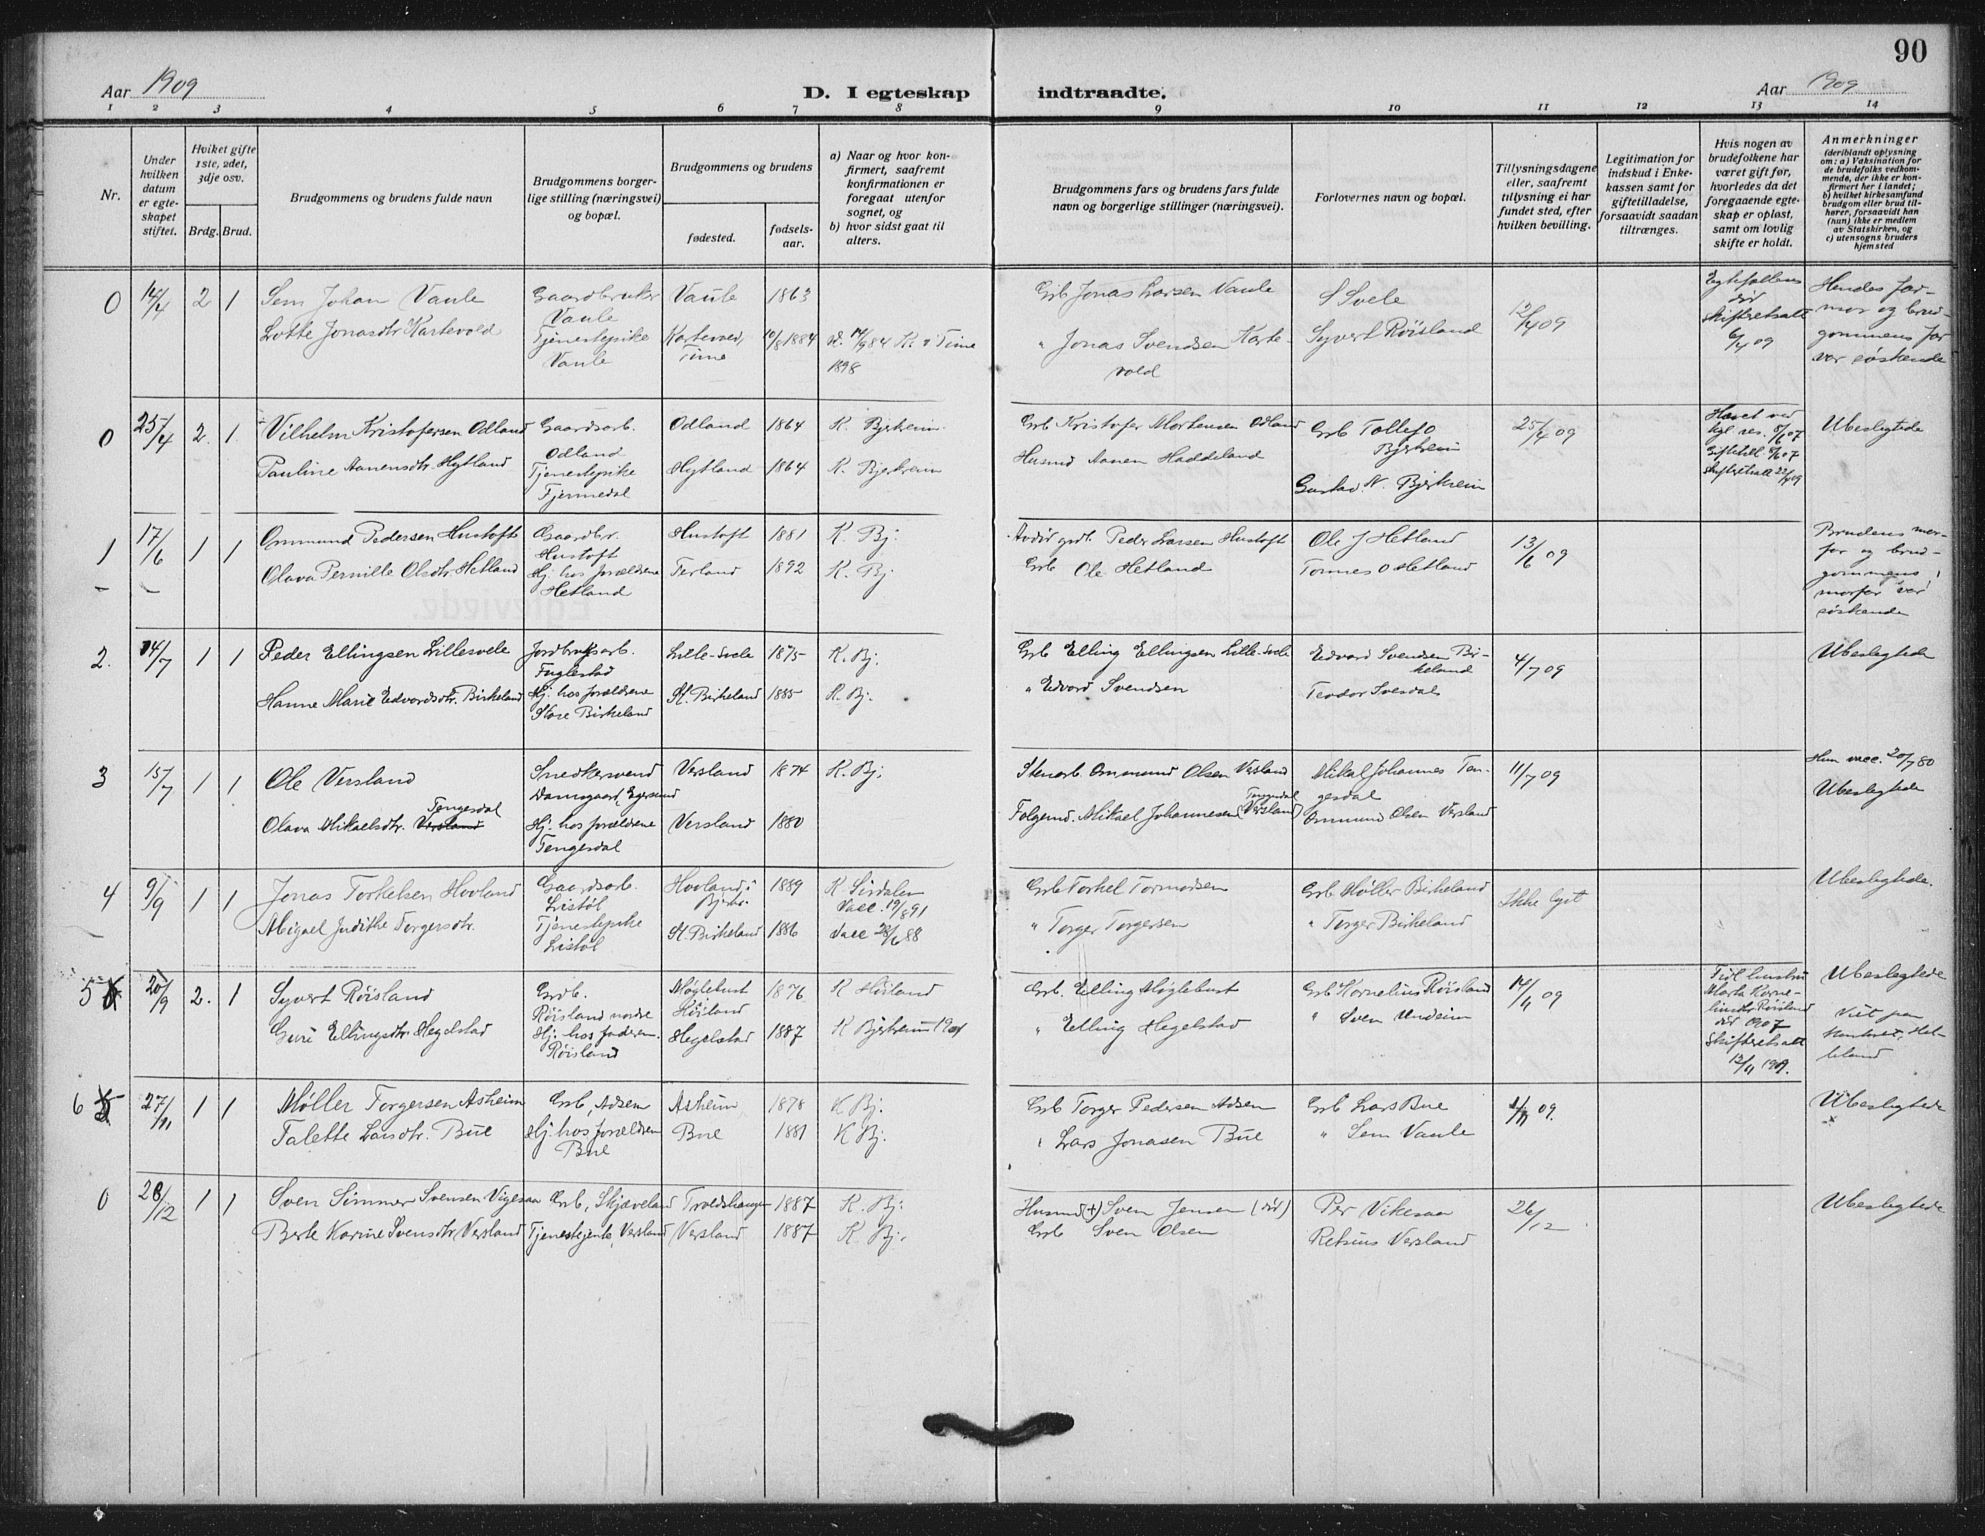 90
Aar 1909
D. I egteskap indtraadte.
Aar 1909
1 2 3 4 5 6 7 8 9 10 11 12 13 14
Nr.
Under hvilken datum er egteskapet stiftet.
Hviket gifte 1ste, 2det, 3dje osv.
Brdg. Brud.
Brudgommens og brudens fulde navn
Brudgommens borgerlige stilling (næringsvei) og bopæl.
Brudgommens og brudens
fødested.
fødselsaar.
a) Naar og hvor konfirmert, saafremt konfirmationen er foregaat utenfor sognet, og
b) hvor sidst gaat til alters.
Brudgommens fars og brudens fars fulde navn og borgerlige stillinger (næringsvei).
Forlovernes navn og bopæl.
Tillysningsdagene eller, saafremt tillysning ei har fundet sted, efter hvilken bevilling.
Legitimation for indskud i Enkekassen samt for giftetilladelse, forsaavidt saadan tiltrænges.
Hvis nogen av brudefolkene har været gift før, hvorledes da det foregaaende egteskap er opløst, samt om lovlig skifte er holdt.
Anmerkninger
(deriblandt oplysning om: a) Vaksination for de brudefolks vedkommende, der ikke er konfirmert her i landet; b) hvilket kirkesamfund brudgom eller brud tilhører, forsaavidt han (hun) ikke er medlem av Statskirken, og c) utensogns bruders hjemsted
0 14/4 2 1 Sem Johan Vaule Gaardbruker Vaule Vaule 1863 Grb Jonas Larsen Vaule S Svele 12/4 09 Egtefællens død Skifteretsatt 6/4 09 Hendes farmor og brudgommens far var søskende
Lotte Jonasdtr. Kartevold Tjenestepike Vaule Kartevold, Time 10/8 1884 K. i Time 1898 " Jonas Svendsen Kartevold Syvert Røisland
0 25/4 2. 1. Vilhelm Kristofersen Odland Gaardsarb. Odland Odland 1864 K. Bjerkreim. Grb Kristofer Mortensen Odland Grb Tollef O Bjerkreim 25/4 09 Hævet ved kgl. res. Ubeslegtede
Pauline Aanensdtr. Hytland Tjenestepike Hytland 1864 K. Bjerkreim Husmd Aanen Haddeland Gustav N. Bjerkreim
1 17/6 1 1 Ommund Pedersen Hustoft Gaardbr. Hustoft Hustoft 1881 K. Bj: Peder Larsen Hustoft Ole J Hetland 13/6 09 Brudens morfar og brudgommens morfar var søskende
Olava Pernille Olsdtr. Hetland Hj. hos forældrene Hetland Terland 1892 K. Bj Grb Ole Hetland Tønnes O Hetland
2. 14/7 1 1 Peder Ellingsen Lillesvele Jordbruksarb. Fuglestad Lille-Svele 1875 K. Bj. Grb Elling Ellingsen Lille-Svele Edvard Svendsen Birkeland 4/7 09 Ubeslegtede
Hanne Marie Edvardsdtr. Birkeland Hj. hos forældrene Store Birkeland St. Birkeland 1885 K. Bj. " Edvard Svendsen Teodor Svesdal
3 15/7 1 1 Ole Versland Snedkersvend Damsgaard, Egersund Versland 1874 K. Bj. Stenarb. Ommund Olsen Versland Mikal Johannes Tengesdal 11/7 09 Hun vacc. 20/7 80 Ubeslegtede
Olava Mikaelsdtr. Versland Tengesdal Hj. hos forældrene Tengesdal Versland 1880 Folgemd. Mikael Johannesen (Versland) Ommund Olsen Versland
4 9/9 1 1 Jonas Torkelsen Hovland Gaardsarb. Listøl Hovland i Bjerkr. 1889 K Sirdalen Vacc. 19/8 91 Grb Torkel Tormodsen Grb Møller Birkeland Ikke lyst Ubeslegtede.
Abigael Judithe Torgersdtr. Tjenestepike Listøl St. Birkeland 1886 Vacc 28/6 88 " Torger Torgersen " Torger Birkeland
5 20/9 2. 1 Syvert Røisland Grdb. Røisland nordre Møglebust Høiland 1876 K Høiland Grb. Elling Møglebust Grb Kornelius Røisland Ubeslegtede
Guri Ellingsdtr Hegelstad Hj. hos faderen Røisland Hegelstad 1887 K Bjerkreim 1901 " Elling Hegelstad " Sven Undeim
6 27/11 1 1 Møller Torgersen Asheim Grb, Adsem Asheim 1878 K Bj: Grb Torger Pedersen Adsen Grb Lars Bue 09. Ubeslegtede
Talette Larsdtr. Bue Hj. hos forældren Bue Bue 1881 K Bj. " Lars Jonasen Bue " Sem Vaule
0 28/12 1 1 Sven Simmer Svensen Vigesaa Grb, Skjæveland 1887 K. Bj: Husmd (+) Sven Jensen (død) Per Vikesaa 26/12 Ubeslegtede
Berte Karine Svensdtr Versland Tjenestejente, Versland Versland 1887 K. Bj. Grb Sven Olsen Retsius Versland